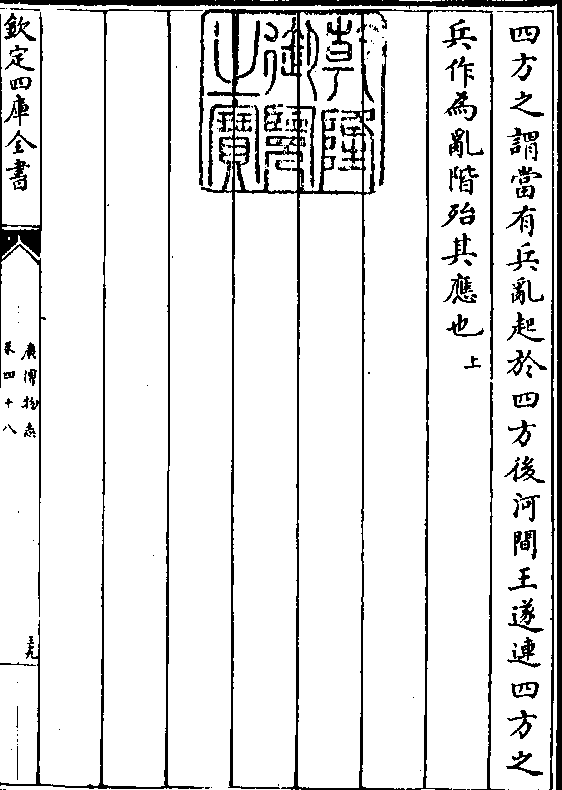 四方之謂當有兵亂起於四方後河間王遂連四方之
兵作為亂階殆其應也上
乾隆御覽之寶
欽定四庫全書
廣博物志
卷四十八
三九